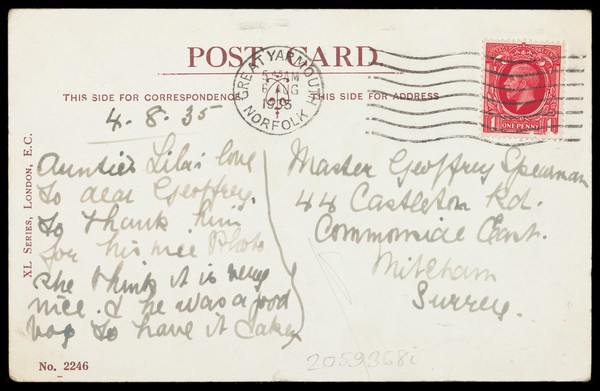 POST CARD
THIS SIDE FOR CORRESPONDENCE
THIS SIDE FOR ADDRESS
GREAT YARMOUTH
AUG
1935
NORFOLK
1 ONE PENNY 1
4.8.35
Auntie Lila's love
to dear Geoffrey.
to thank him
for his nice Photo
she think it is very
nice. & he was a good
boy to have it taken
Master Geoffrey Spearman
44 Castleton Rd.
Commonside East.
Mitcham
Surrey.
XL SERIES, LONDON, E.C.
No. 2246
2059368i